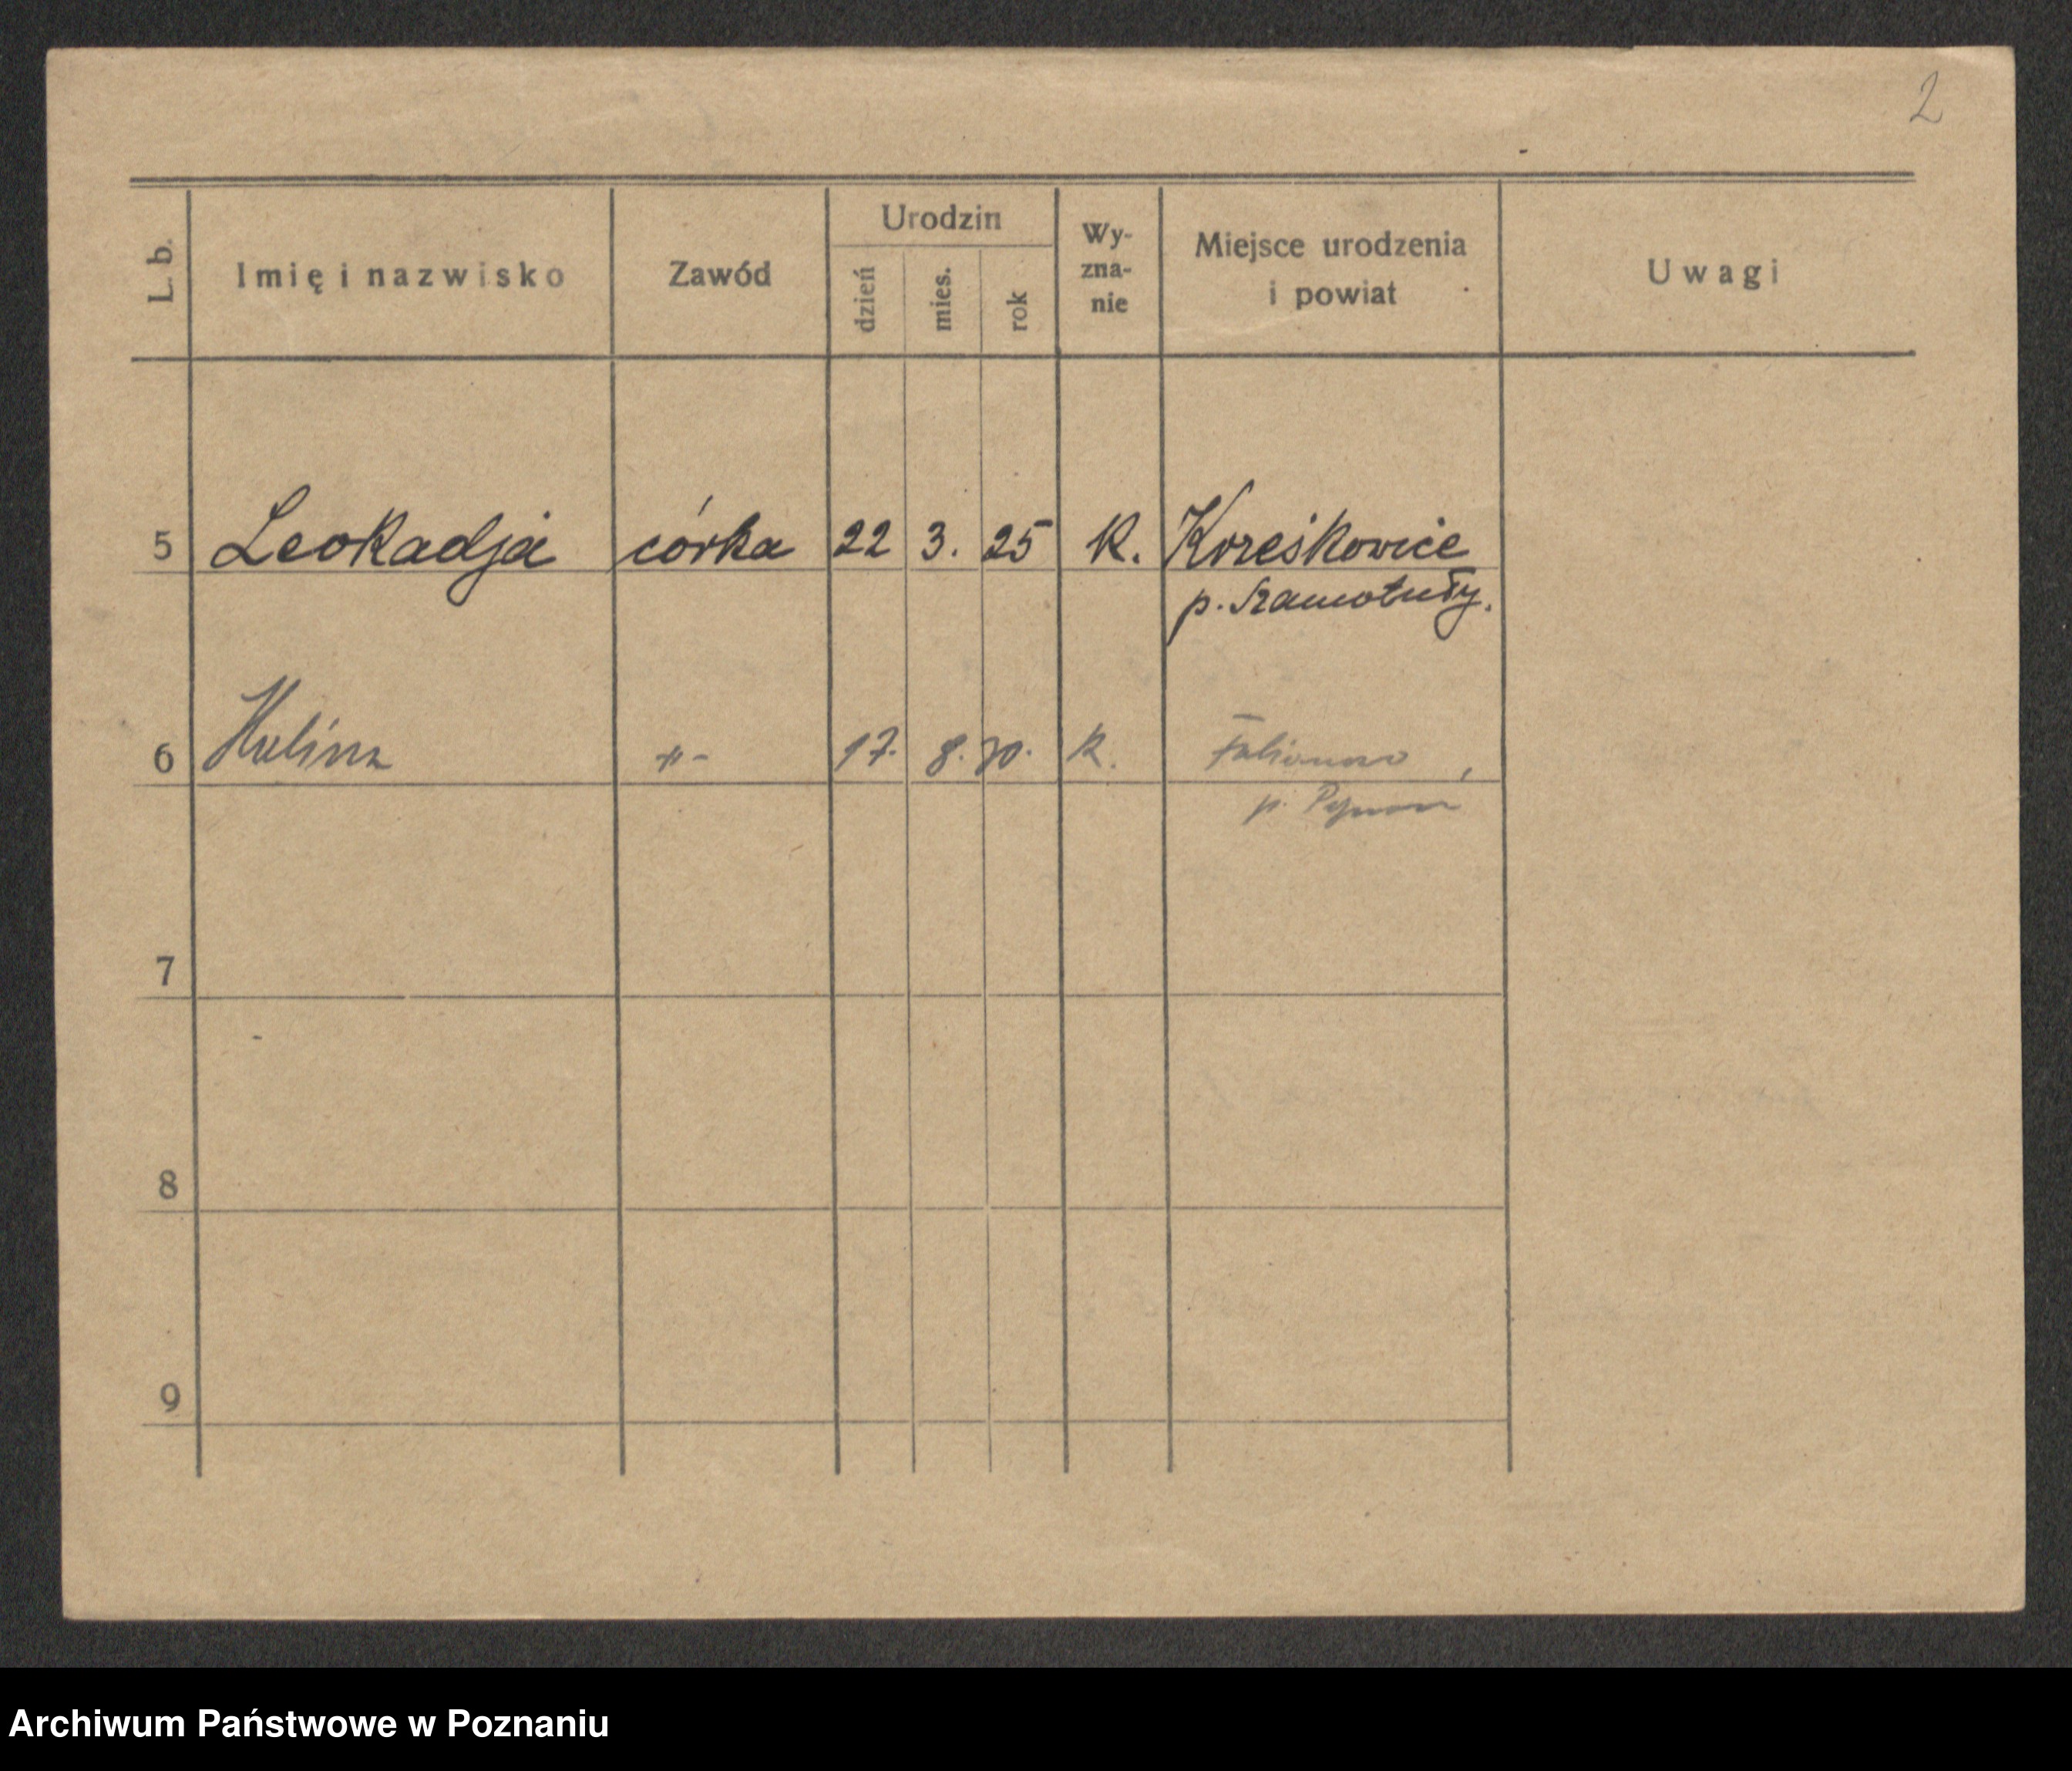 2
L. b.
Imię i nazwisko
Zawód
Urodzin
dzień
mies.
rok
Wy-
zna-
nie
Miejsce urodzenia
i powiat
Uwagi
5 Leokadja córka 22 3. 25 K. Koześkowice
p. Szamotuły.
6 Halina -"- 17. 8. 30. K.
p.
7
8
9
Archiwum Państwowe w Poznaniu